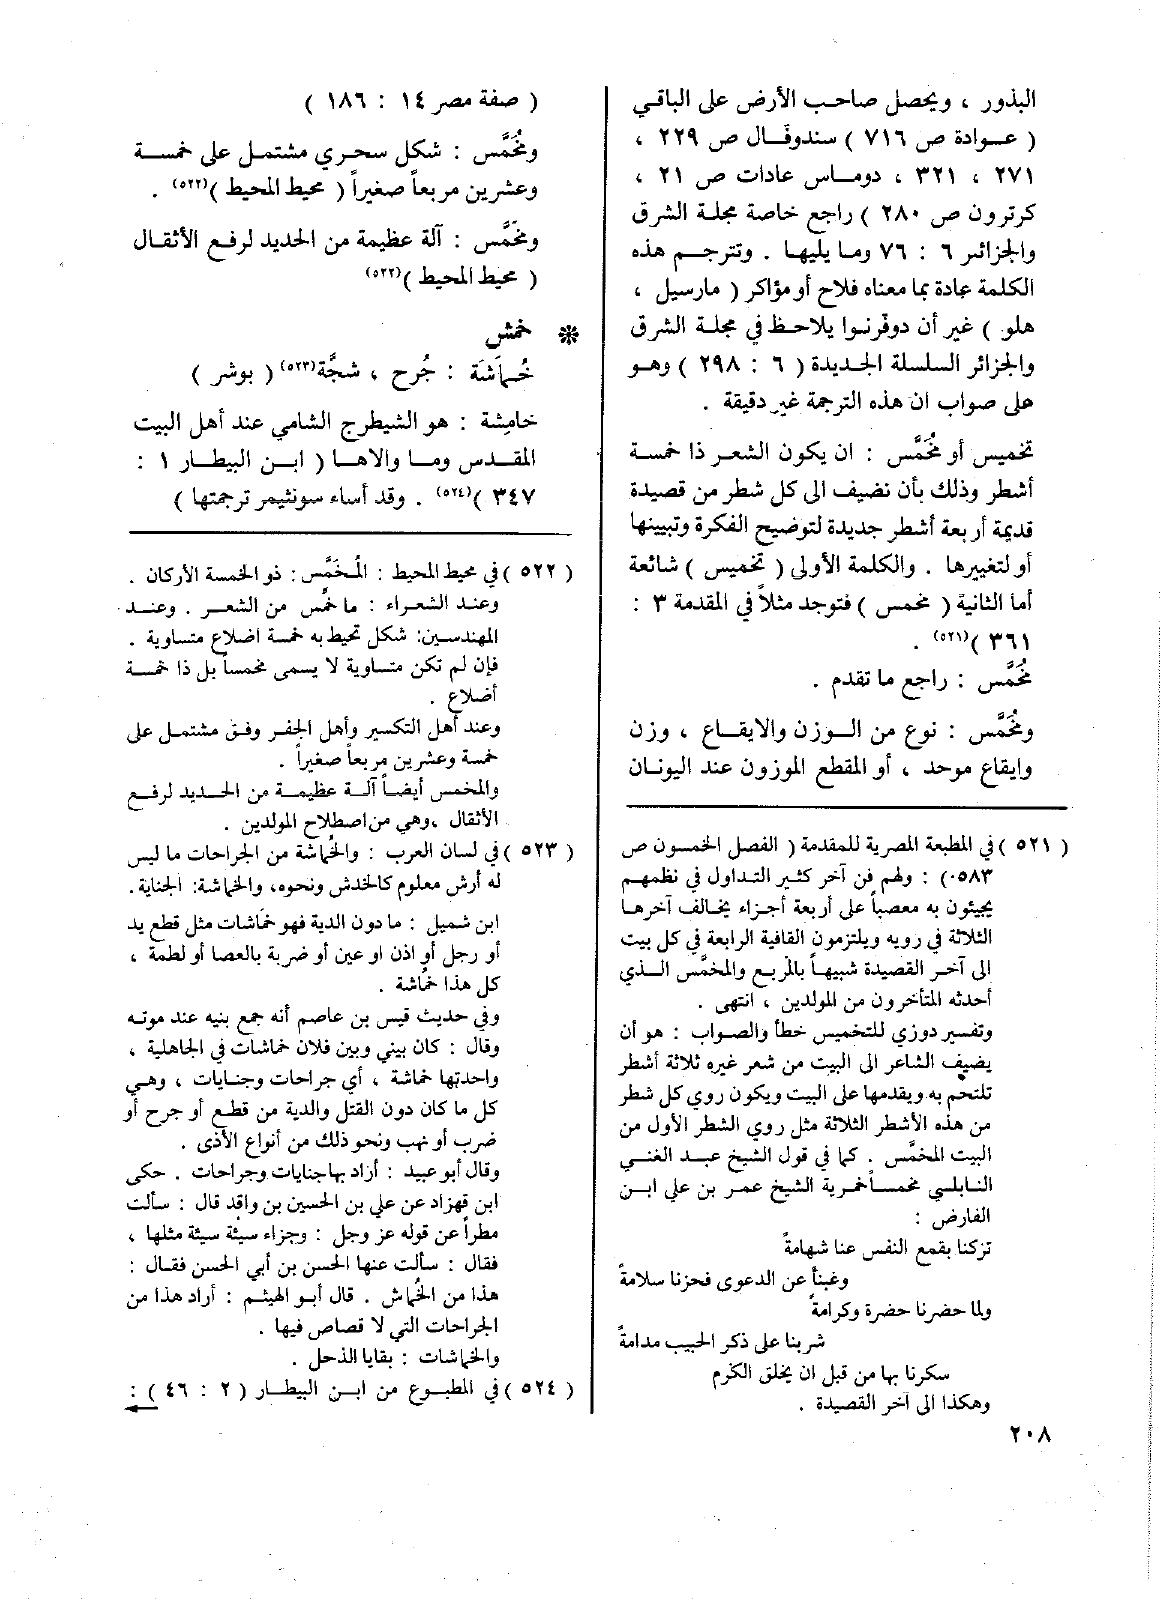 البذور ، ويحصل صاحب الأرض على الباقي
( عـوادة ص ٧١٦ ) سندوفـال ص ٢٢٩ ،
٢٧١ ، ٣٢١ ، دومـاس عادات ص ٢١ ،
كرترون ص ٢٨٠ ) راجع خاصة مجلة الشرق
والجزائر ٦ : ٧٦ وما يليها . وتترجم هذه
الكلمة عادة بما معناه فلاح أو مؤاكر ( مارسيل ،
هلو ) غير أن دوفرنوا يلاحظ في مجلة الشرق
والجزائر السلسلة الجديدة ( ٦ : ٢٩٨ ) وهو
على صواب ان هذه الترجمة غير دقيقة .
تخميس أو مُخَمَّس : ان يكون الشعر ذا خمسة
أشطر وذلك بأن نضيف الى كل شطر من قصيدة
قديمة أربعة أشطر جديدة لتوضيح الفكرة وتبيينها
أو لتغييرها . والكلمة الأولى ( تخميس ) شائعة
أما الثانية ( مخمس ) فتوجد مثلاً في المقدمة ٣ :
٣٦١ )(٥٢١) .
مُخَمَّس : راجع ما تقدم .
ومُخَمَّس : نوع من الوزن والايقاع ، وزن
وإيقاع موحد ، أو المقطع الموزون عند اليونان
( ٥٢١ ) في المطبعة المصرية للمقدمة ( الفصل الخمسون ص
٥٨٣٠) : ولهم فن آخر كثير التداول في نظمهم
يجيئون به معصباً على أربعة أجزاء يخالف آخرها
الثلاثة في رويه ويلتزمون القافية الرابعة في كل بيت
الى آخر القصيدة شبيهاً بالمربع والمخمَّس الذي
أحدثه المتأخرون من المولدين ، انتهى .
وتفسير دوزي للتخميس خطأ والصواب : هو أن
يضيف الشاعر الى البيت من شعر غيره ثلاثة أشطر
تلتحم به ويقدمها على البيت ويكون روي كل شطر
من هذه الأشطر الثلاثة مثل روي الشطر الأول من
البيت المخمَّس . كما في قول الشيخ عبد الغني
النابلي مخمساً خمرية الشيخ عمر بن علي ابن
الفارض :
تركنا بقمع النفس عنا شهامةً
وغبنا عن الدعوى فحزنا سلامةً
ولما حضرنا حضرة وكرامةً
شربنا على ذكر الحبيب مدامةً
سكرنا بها من قبل ان يخلق الكرم
وهكذا الى آخر القصيدة .
( صفة مصر ١٤ : ١٨٦ )
ومُخَمَّس : شكل سحري مشتمل على خمسة
وعشرين مربعاً صغيراً ( محيط المحيط )(٥٢٢) .
ومُخَمَّس : آلة عظيمة من الحديد لرفع الأثقال
( محيط المحيط )(٥٢٢)
* خمش
خُمَاشَة : جُرح ، شجَّة(٥٢٣) ( بوشر )
خامِشة : هو الشيطرج الشامي عند أهل البيت
المقدس وما والاها ( ابن البيطار ١ :
٣٤٧ )(٥٢٤) . وقد أساء سونثيمر ترجمتها )
( ٥٢٢ ) في محيط المحيط : المُخَمَّس : ذو الخمسة الأركان .
وعند الشعراء : ما خمُس من الشعر . وعند
المهندسين: شكل تحيط به خمسة اضلاع متساوية .
فإن لم تكن متساوية لا يسمى مخمساً بل ذا خمسة
أضلاع .
وعند أهل التكسير وأهل الجفر وفق مشتمل على
خمسة وعشرين مربعاً صغيراً .
والمخمس أيضاً آلة عظيمة من الحديد لرفع
الأثقال ،وهي من اصطلاح المولدين .
( ٥٢٣ ) في لسان العرب : والخُماشة من الجراحات ما ليس
له أرش معلوم كالخدش ونحوه، والخماشة: الجناية.
ابن شميل : ما دون الدية فهو خماشات مثل قطع يد
أو رجل أو اذن او عين أو ضربة بالعصا أو لطمة ،
كل هذا خُماشة .
وفي حديث قيس بن عاصم أنه جمع بنيه عند موته
وقال : كان بيني وبين فلان خماشات في الجاهلية ،
واحدتها خماشة ، أي جراحات وجنايات ، وهي
كل ما كان دون القتل والدية من قطع أو جرح أو
ضرب أو نهب ونحو ذلك من أنواع الأذى .
وقال أبو عبيد : أراد بها جنايات وجراحات . حكى
ابن قهزاد عن علي بن الحسين بن واقد قال : سألت
مطراً عن قوله عز وجل : وجزاء سيئة سيئة مثلها ،
فقال : سألت عنها الحسن بن أبي الحسن فقال :
هذا من الخُماش . قال أبو الهيثم : أراد هذا من
الجراحات التي لا قصاص فيها .
والخماشات : بقايا الذحل .
( ٥٢٤ ) في المطبوع من ابن البيطار ( ٢ : ٤٦ ) :
٢٠٨